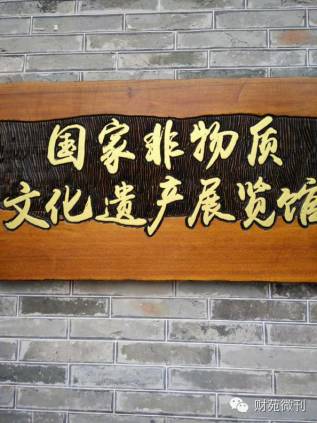 国家非物质
文化遗产展览馆
财苑微刊